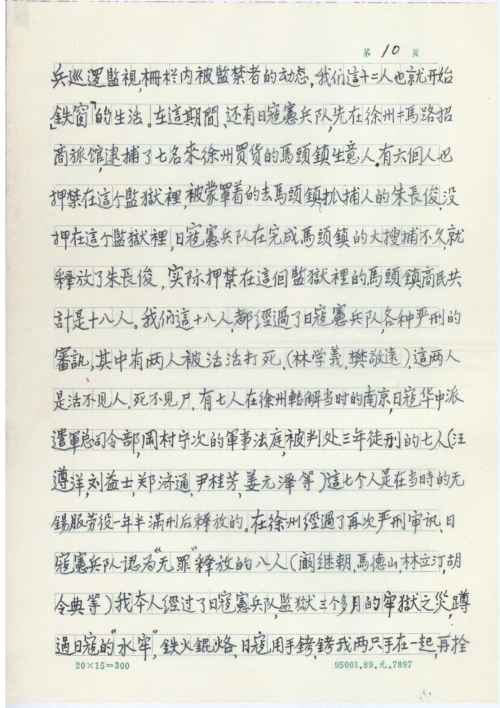 第 10 页
兵巡逻監視,柵栏内被監禁者的动态,我们這十二人也就开始
“鉄窗”的生活。在這期間,还有日寇憲兵队,先在徐州二馬路招
商旅馆,逮捕了七名来徐州買货的馬頭鎮生意人,有六個人也
押禁在這个監獄裡,被蒙罩着的去馬頭鎮扒捕人的朱長俊,没
押在這个監獄裡,日寇憲兵队在完成馬頭鎮的大搜捕不久,就
釋放了朱長俊,实际押禁在這個監獄裡的馬頭鎮商民共
計是十八人。我们這十八人,都經過了日寇憲兵队,各种严刑的
審訊,其中有两人被活活打死,(林学義,樊敬遠),這两人
是活不见人,死不见尸,有七人在徐州轉解当时的南京,日寇华中派
遣軍总司令部,岡村宁次的軍事法庭,被判处三年徒刑的七人(汪
遵洋,刘益士,郑 通,尹桂芳,姜元澤等)這七个人是在当時的无
锡服劳役一年半滿刑后釋放的。在徐州經過了再次严刑审讯,日
寇憲兵队認为“无罪”釋放的八人(阚继朝,馬德山,林立汀,胡
令典等)我本人经过了日寇憲兵队,監獄三个多月的牢獄之災,蹲
過日寇的“水牢”,鉄火錕烙,日寇用手銬,銬我两只手在一起,再拴
20×15=300
95001.89.元.7897